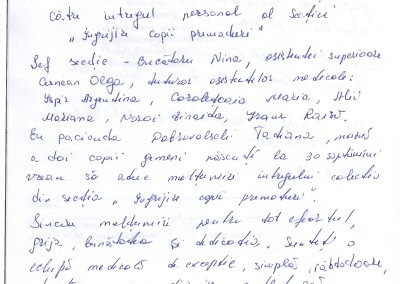 Către întregul personal al Secției
„Îngrijire copii prematuri"
Șef secție - Bucătaru Nina, asistentei superioare
Cornean Olga, tuturor asistentelor medicale:
Argentina, Maria,
Mariana, Noroi Zinaida,
Eu pacienta Dobrovolschi Tatiana, mamă
a doi copii gemeni născuți la 30 săptămîni
vreau să aduc mulțumiri întregului colectiv
din secția „Îngrijire copii prematuri".
Sincere mulțumiri pentru tot efortul,
grija, bunătatea și dedicația. Sunteți o
echipă medicală de excepție, simplă, răbdătoare,